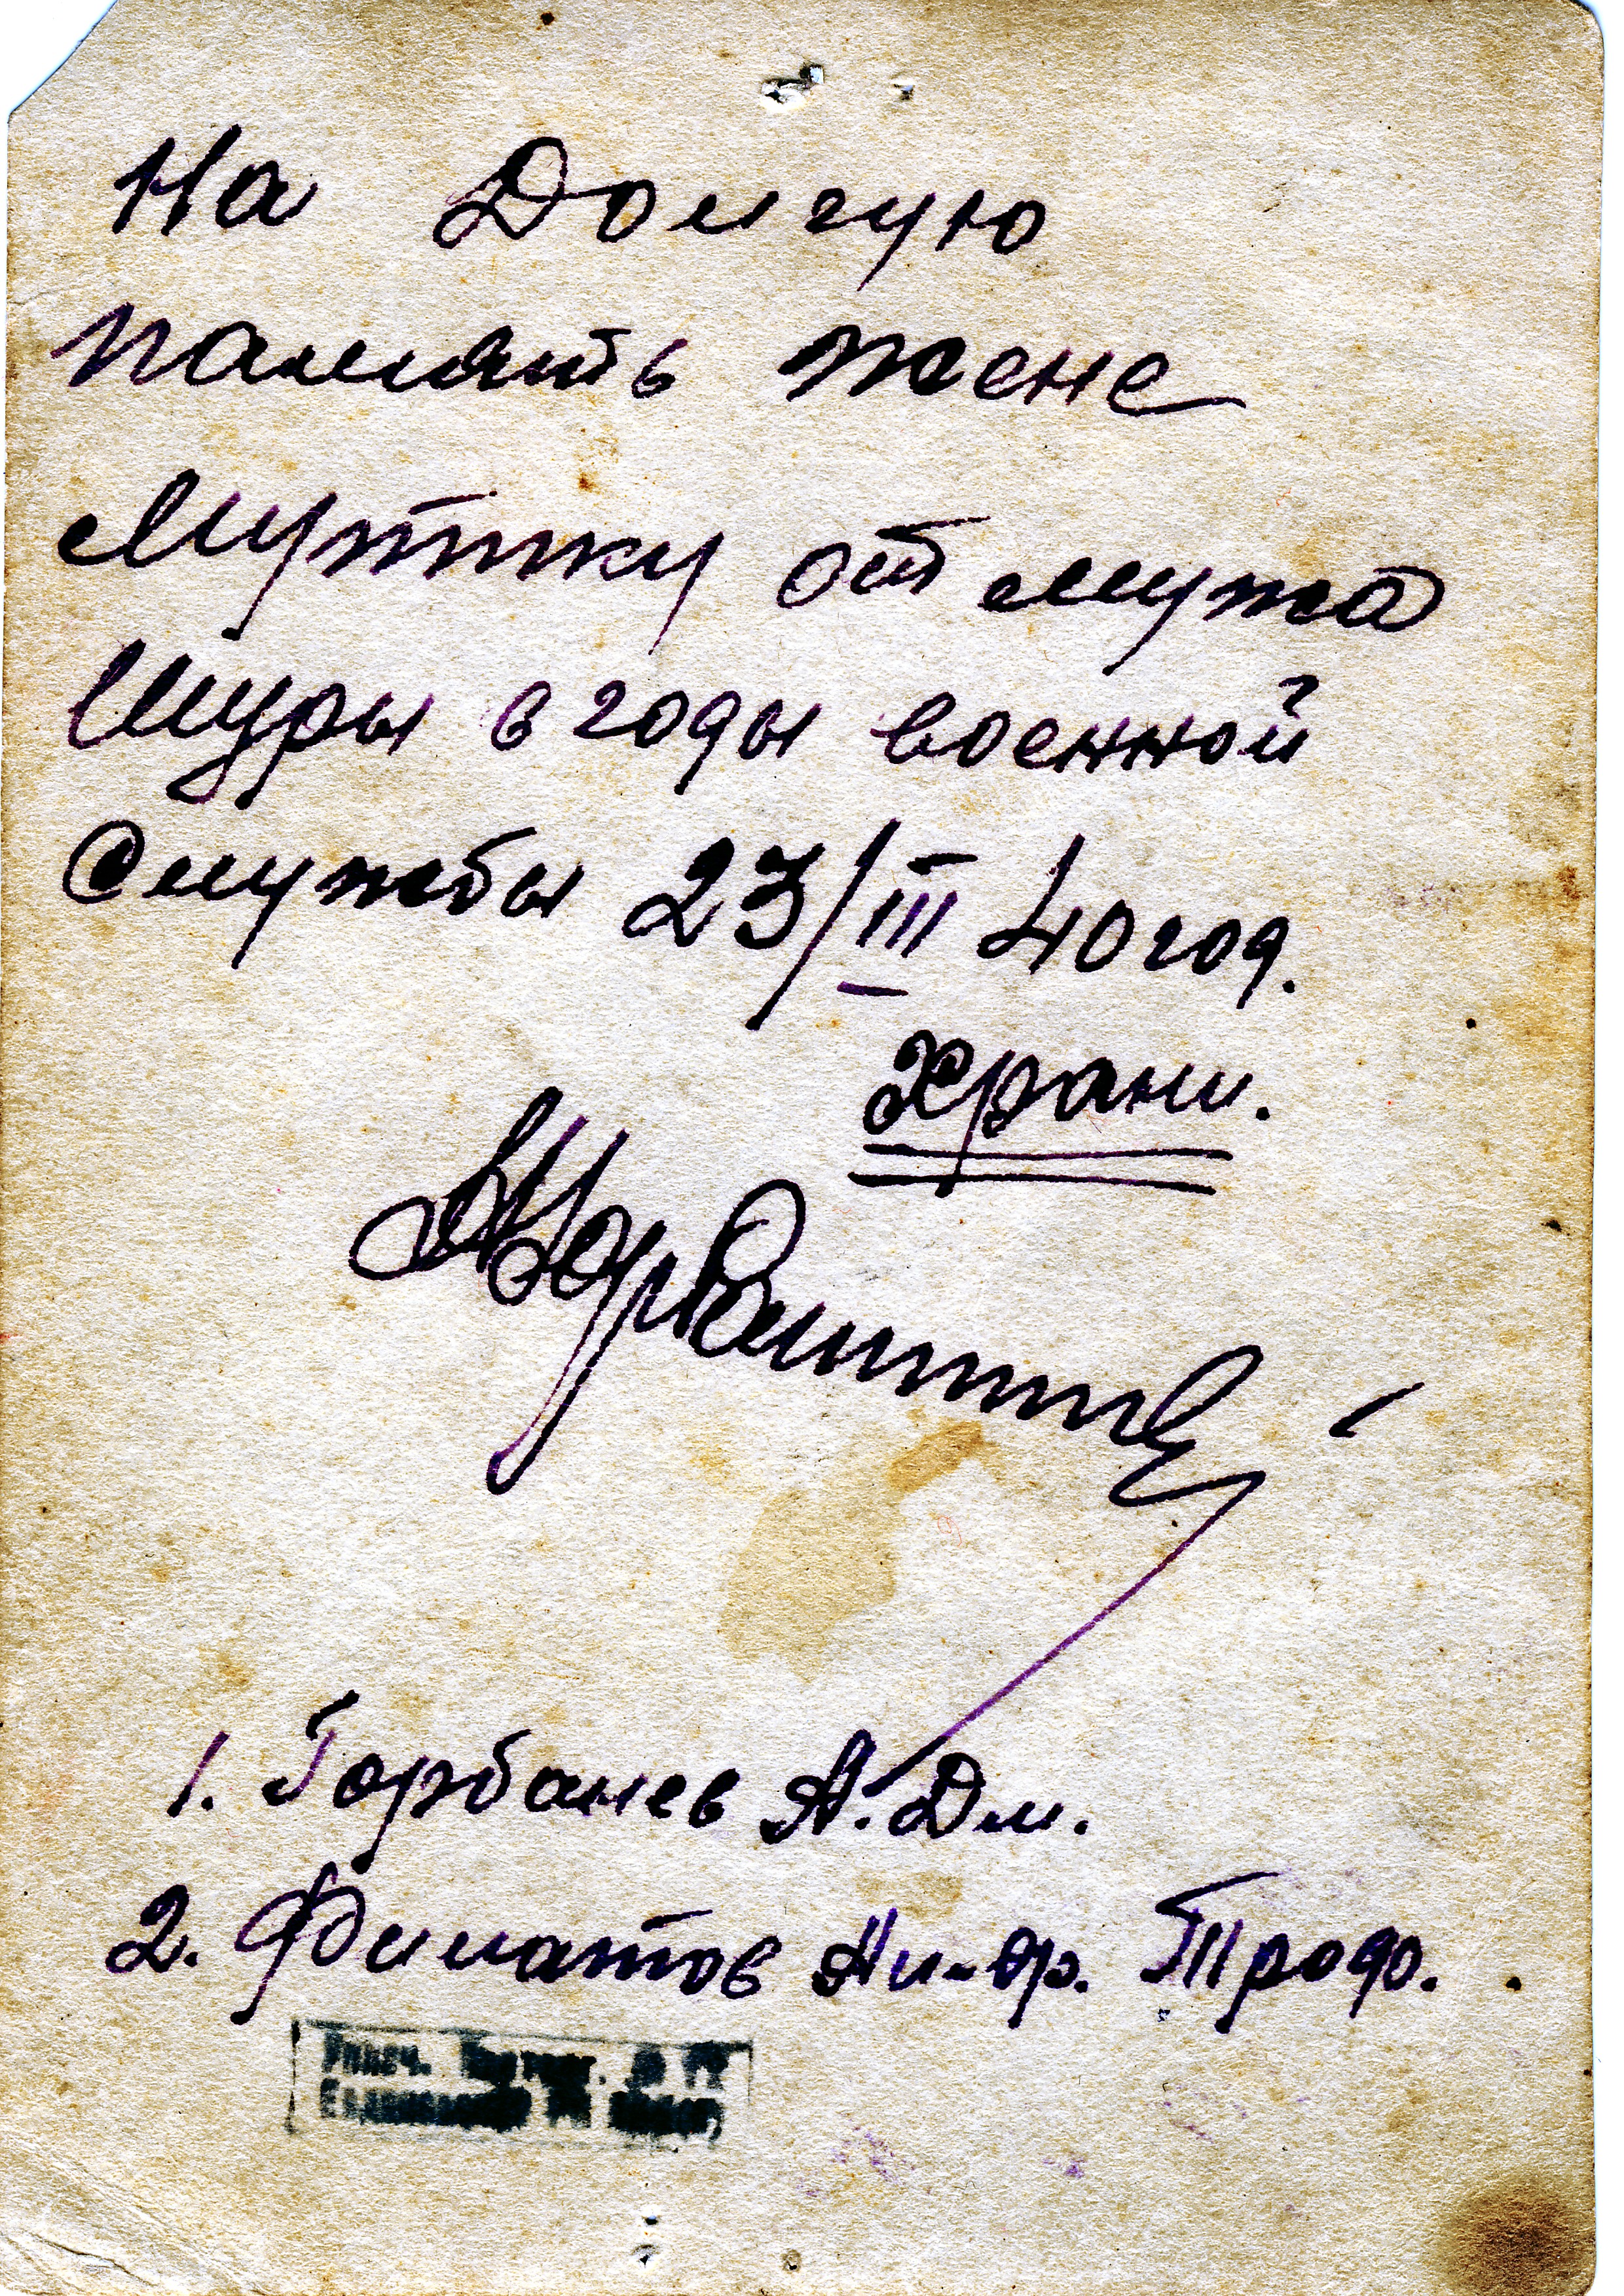 На Долгую
память жене
Муржику от мужа
Шуры в годы военной
Службы 23/III 40 год.
Храни.
1. Горбанев А. Дм.
2. Филатов Трофо.